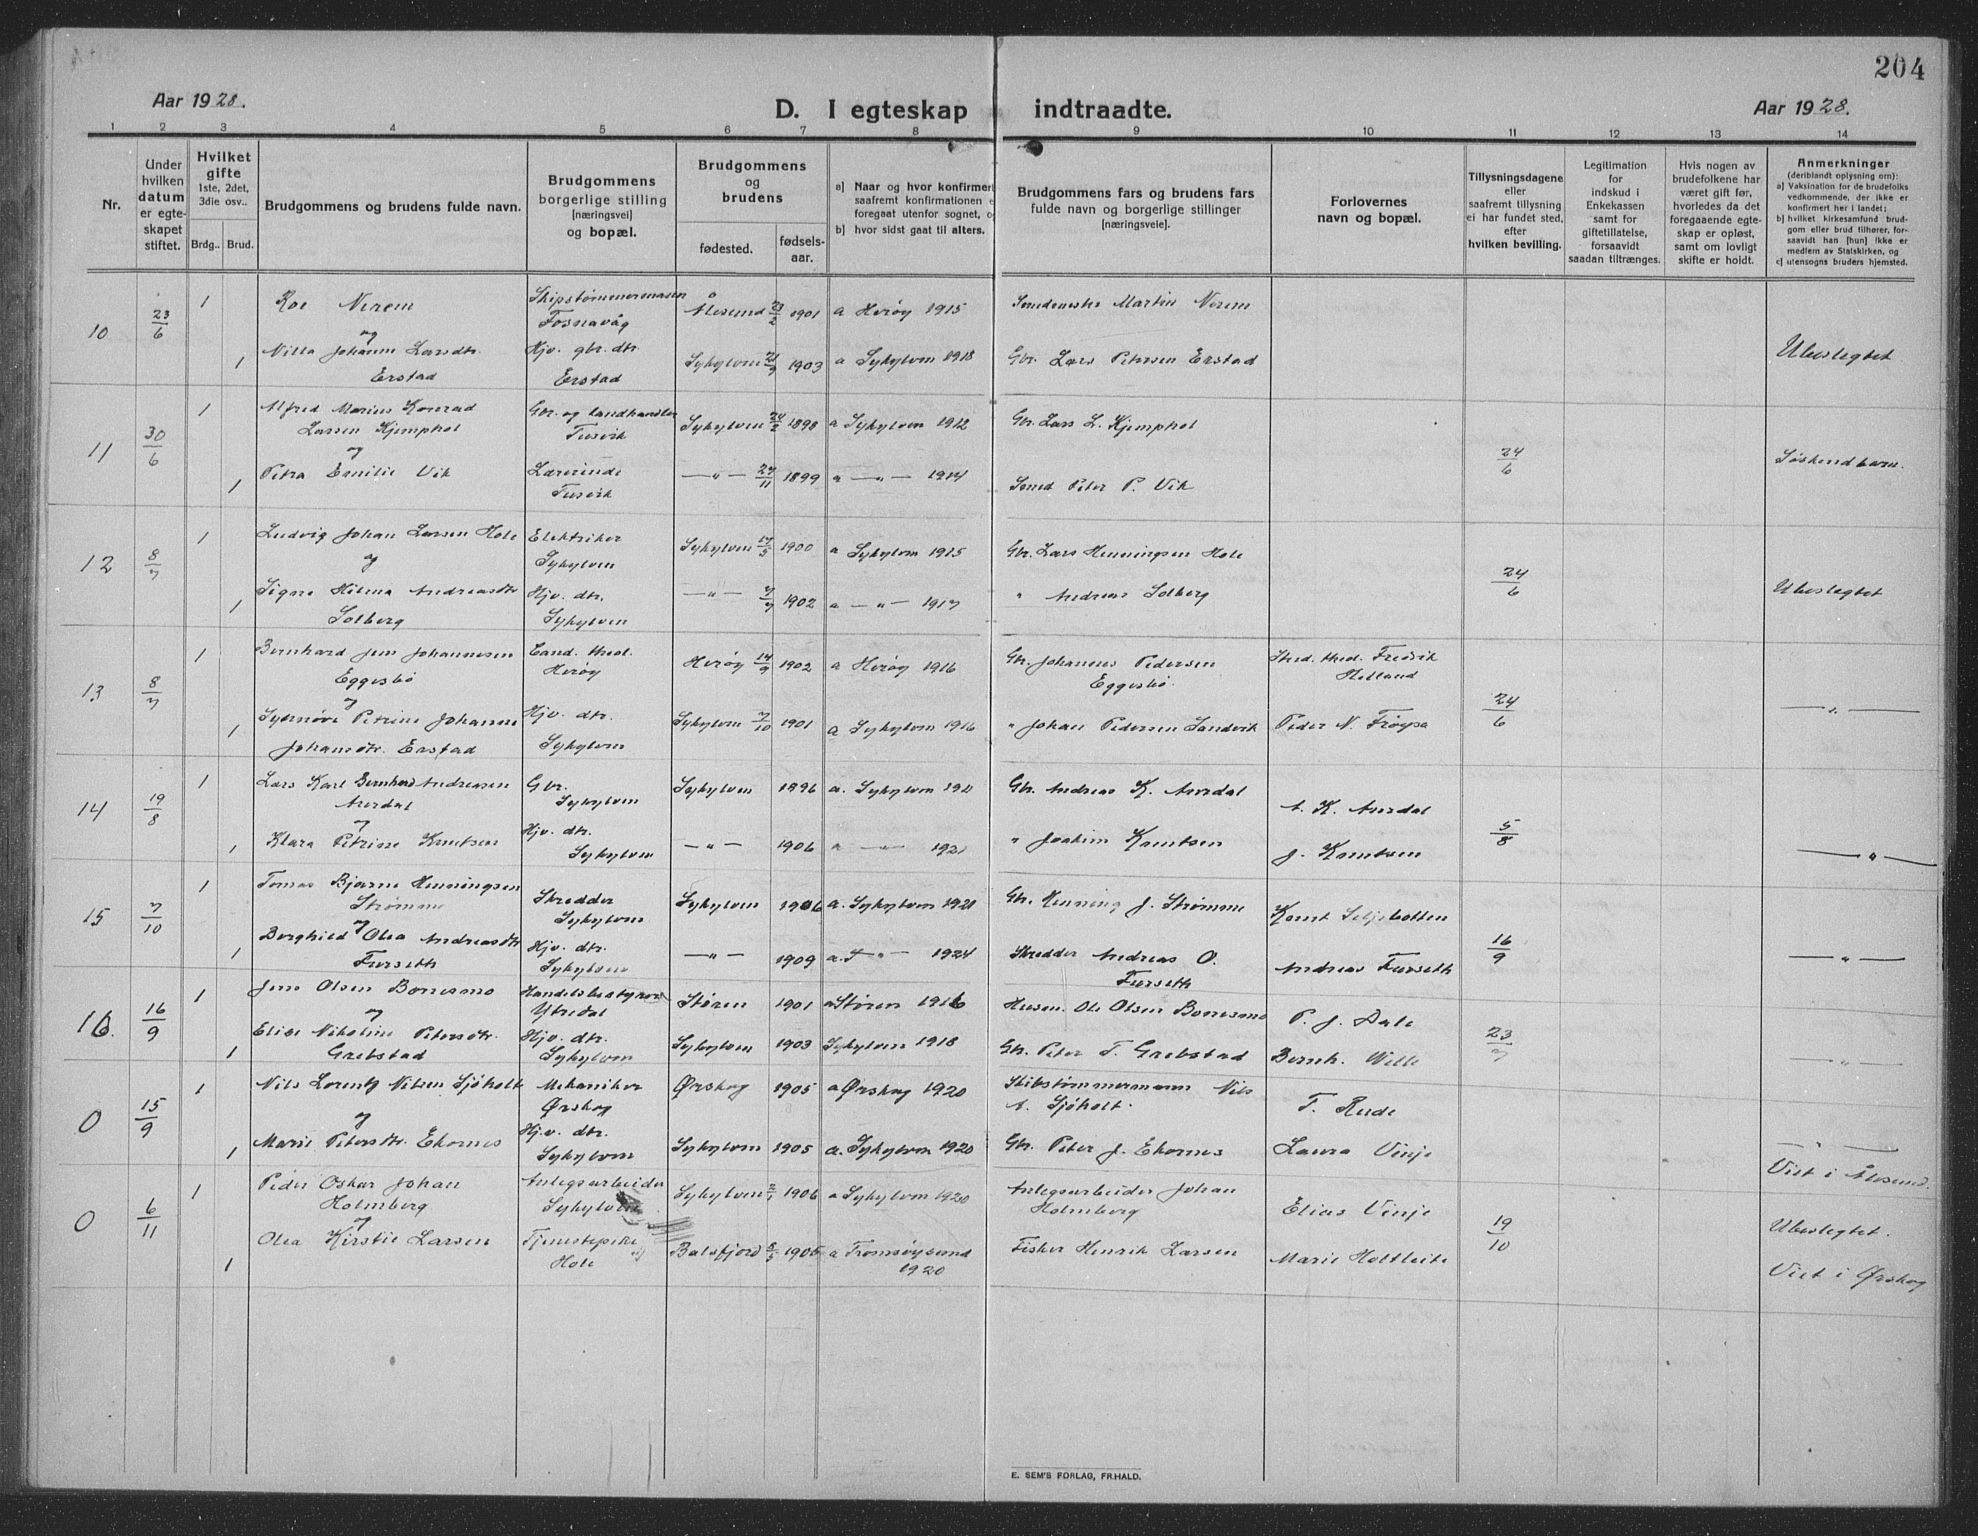 204
Aar 1928.
D. I egteskap indtraadte.
Aar 1928.
1 2 3 4 5 6 7 8 9 10 11 12 13 14
Nr.
Under hvilken datum er egteskapet stiftet.
Hvilket gifte 1ste, 2det, 3die osv..
Brdg.. Brud.
Brudgommens og brudens fulde navn.
Brudgommens borgerlige stilling [næringsvei] og bopæl.
Brudgommens og brudens
fødested.
fødsels-aar.
a] Naar og hvor konfirmert saafremt konfirmationen e foregaat utenfor sognet, o
b] hvor sidst gaat til alters.
Brudgommens fars og brudens fars fulde navn og borgerlige stillinger [næringsveie].
Forlovernes navn og bopæl.
Tillysningsdagene eller saafremt tillysning ei har fundet sted, efter hvilken bevilling.
Legitimation for indskud i Enkekassen samt for giftetillatelse, forsaavidt saadan tiltrænges.
Hvis nogen av brudefolkene har været gift før, hvorledes da det foregaaende egteskap er opløst, samt om lovligt skifte er holdt.
Anmerkninger (deriblandt oplysning om):
a] Vaksination for de brudefolks vedkommende, der ikke er konfirmert her i landet;
b] hvilket kirkesamfund brudgom eller brud tilhører, forsaavidt han [hun] ikke er medlem av Statskirken, og
c] utensogns bruders hjemsted.
10 23/6 1 Roe Nerem Skipstømmermann Fosnavåg Ålesund 23/2 1901 a Herøy 1915 Martin Nerem
og
1 Johanne Larsdtr. Erstad Hjv. gbr. dtr. Erstad Sykylven 1903 a Sykylven 1918 Gbr. Lars Petersen Erstad Ubeslegtet
11 30/6 1 Alfred Marius Konrad Larsen Kjemphol Gbr. og landhandler Tusvik Sykylven 24/2 1898 a Sykylven 1912 Gbr. Lars L. Kjemphol 24/6 Søskendbarn.
og
1 Petra Emilie Vik Lærerinde Tusvik —"— 27/11 1899 a —"— 1914 Smed Peter P. Vik
12 8/7 1 Ludvig Johan Larsen Hole Elektriker Sykylven 17/5 1900 a Sykylven 1915 Gbr. Lars Henningsen Hole 24/6
og
1 Signe Hilma Andreasdtr Solberg Hjv. dtr. Sykylven —"— 7/7 1902 a —"— 1917 " Andreas Solberg Ubeslegtet
13 8/7 1 Bernhard Jen Johannesen Eggesbø Cand. theol. Herøy Herøy 14/9 1902 a Herøy 1916 Gbr. Johannes Pedersen Eggesbø. Stud. theol. Fredrik Helland 24/6
og
1 Synnøve Petrine Johanne Johansdtr. Erstad Hjv. dtr. Sykylven Sykylven 7/10 1901 a Sykylven 1916 " Johan Pedersen Sandvik Peder N. Frøysa —"—
14 19/8 1 Lars Karl Bernhard Andreasen Aurdal Gbr. Sykylven Sykylven 1896 a. Sykylven 1911 Gbr. Andreas K. Aurdal A. K. Aurdal 5/8
og
1 Klara Petrine Knutsen Hjv. dtr. Sykylven —"— 1906 a —"— 1921 " Joakim Knutsen J. Knutsen —"—
15 7/10 1 Tomas Bjarne Henningsen Strømme Skredder Sykylven Sykylven 1906 a. Sykylven 1921 Gbr. Henning J. Strømme Knut Seljebotten 16/9
og
1 Borghild Olea Andreasdtr Furseth Hjv. dtr. Sykylven —"— 1909 a. —"— 1924 Skredder Andreas O. Furseth Andreas Furseth —"—
16. 16/9 1 Jens Olsen Bonesmo Handelsbestyrer Ytredal Støren 1901 a Støren 1916 Husm. Ole Olsen Bonesmo P. J. Dale 23/7
og
1 Elise Nikoline Petersdtr. Grebstad Hjv. dtr. Sykylven Sykylven 1903 Sykylven 1918 Gbr. Peter T. Grebstad Bernh. Wille —"—
0 15/9 1 Nils Lorentz Nilsen Sjøholt Mekaniker Ørskog Ørskog 1905 a Ørskog 1920 Skibstømmermann Nils A. Sjøholt. T. Rude
og
1 Marie Petersdtr. Ekornes Hjv. dtr. Sykylven Sykylven 1905 a. Sykylven 1920 Gbr. Peter J. Ekornes Laura Vinje —"— Viet i Ålesund.
0 6/11 1 Peder Oskar Johan Holmberg Anlegsarbeider Sykylven Sykylven 1906 a Sykylven 1920 Anlegsarbeider Johan Holmberg Elias Vinje 19/10 Ubeslegtet.
og
1 Olea Kirstie Larsen Tjenestepike Hole Balsfjord 1905 a Tromsøysund 1920 Fisker Henrik Larsen Marie Holtleite Viet i Ørskog
E. SEM'S FORLAG, FR.HALD.